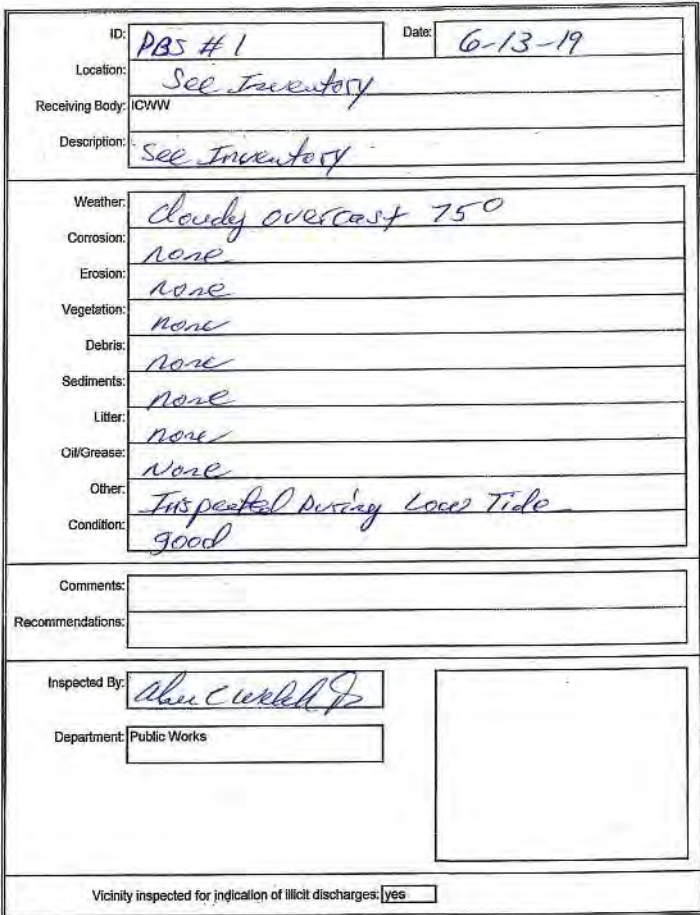 ID: PBS # 1 Date: 6-13-19
Location: See Inventory
Receiving Body: ICWW
Description: See Inventory
Weather: cloudy overcast 75°
Corrosion: none
Erosion: none
Vegetation: none
Debris: none
Sediments: none
Litter: none
Oil/Grease: None
Other: Inspected During Low Tide
Condition: good
Comments:
Recommendations:
Inspected By:
Department: Public Works
Vicinity inspected for indication of illicit discharges: yes